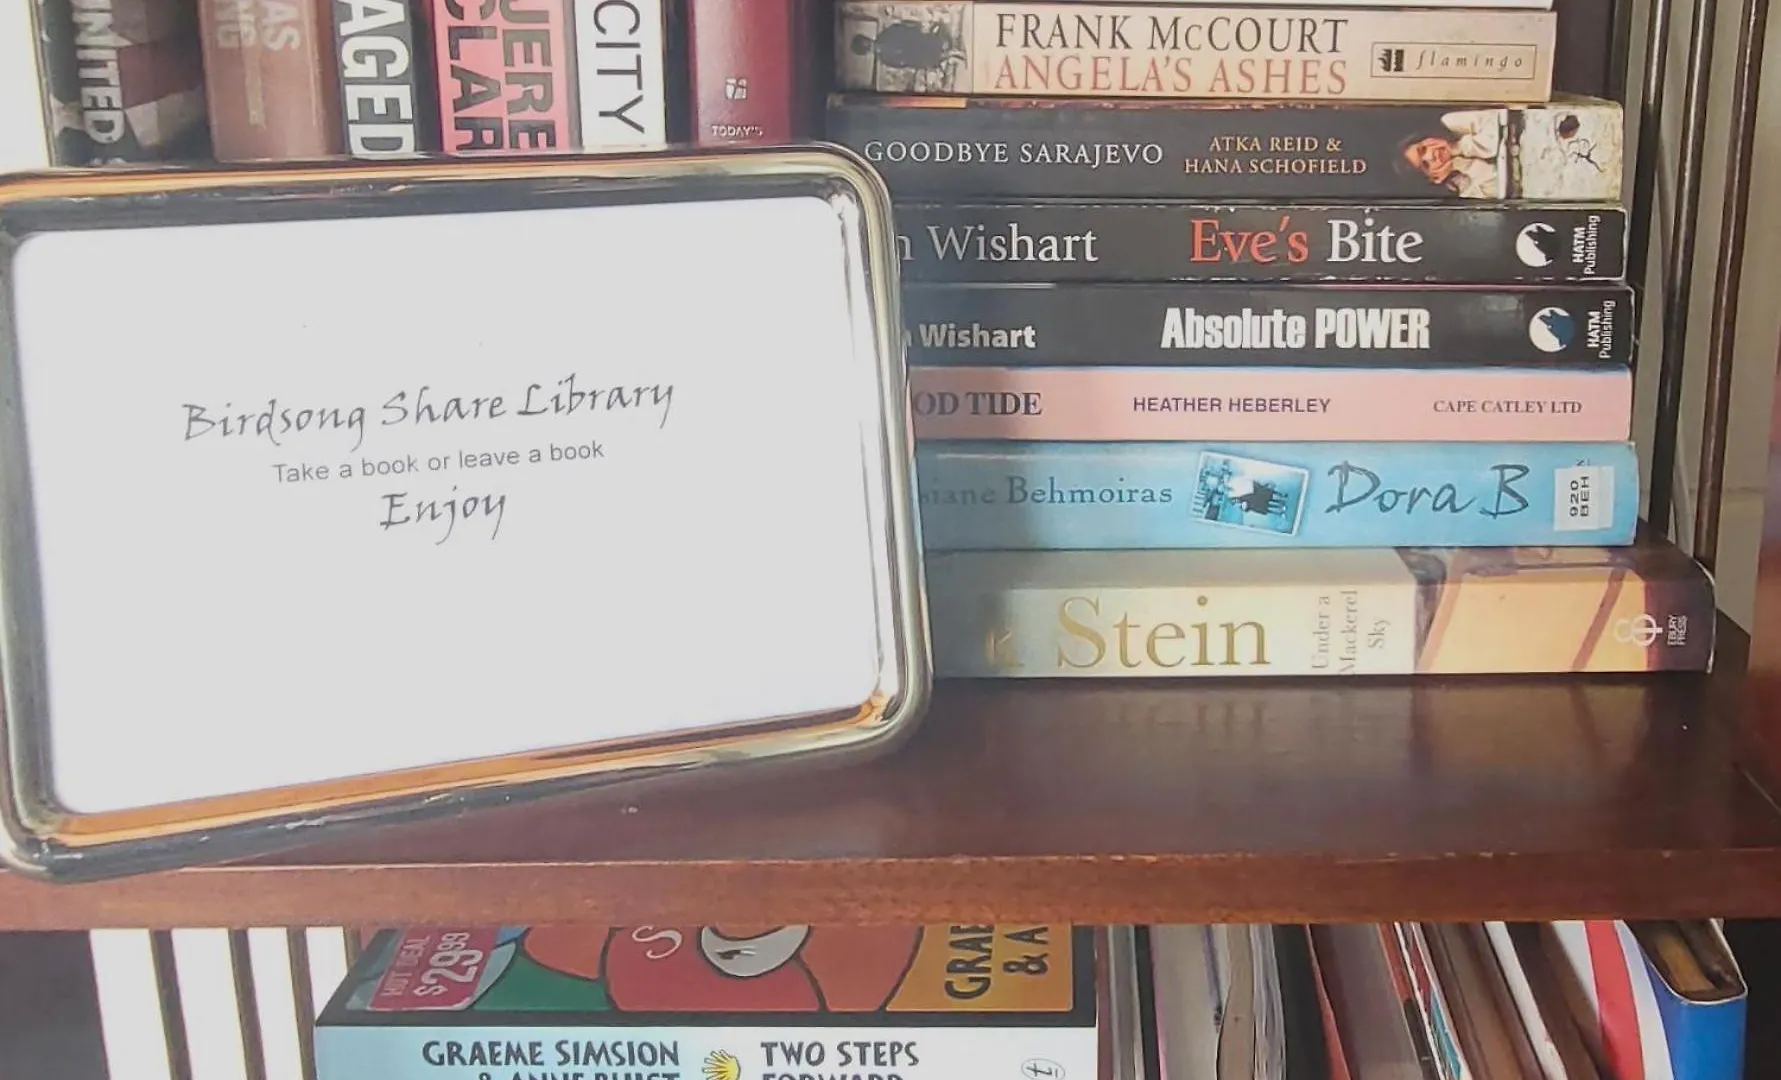 UNITED
AS
NG
AGED
JERE
CLAR
CITY
TODAY'S
FRANK McCOURT
ANGELA'S ASHES
flamingo
GOODBYE SARAJEVO
ATKA REID &
HANA SCHOFIELD
n Wishart Eve's Bite
HATM
Publishing
n Wishart Absolute POWER
HATM
Publishing
OD TIDE HEATHER HEBERLEY CAPE CATLEY LTD
iane Behmoiras Dora B
920
BEH
k Stein
Under a
Mackerel
Sky
EBURY
PRESS
Birdsong Share Library
Take a book or leave a book
Enjoy
HOT DEAL
$29.99
S
GRAE
& A
GRAEME SIMSION
& ANNE BUIST
TWO STEPS
FORWARD